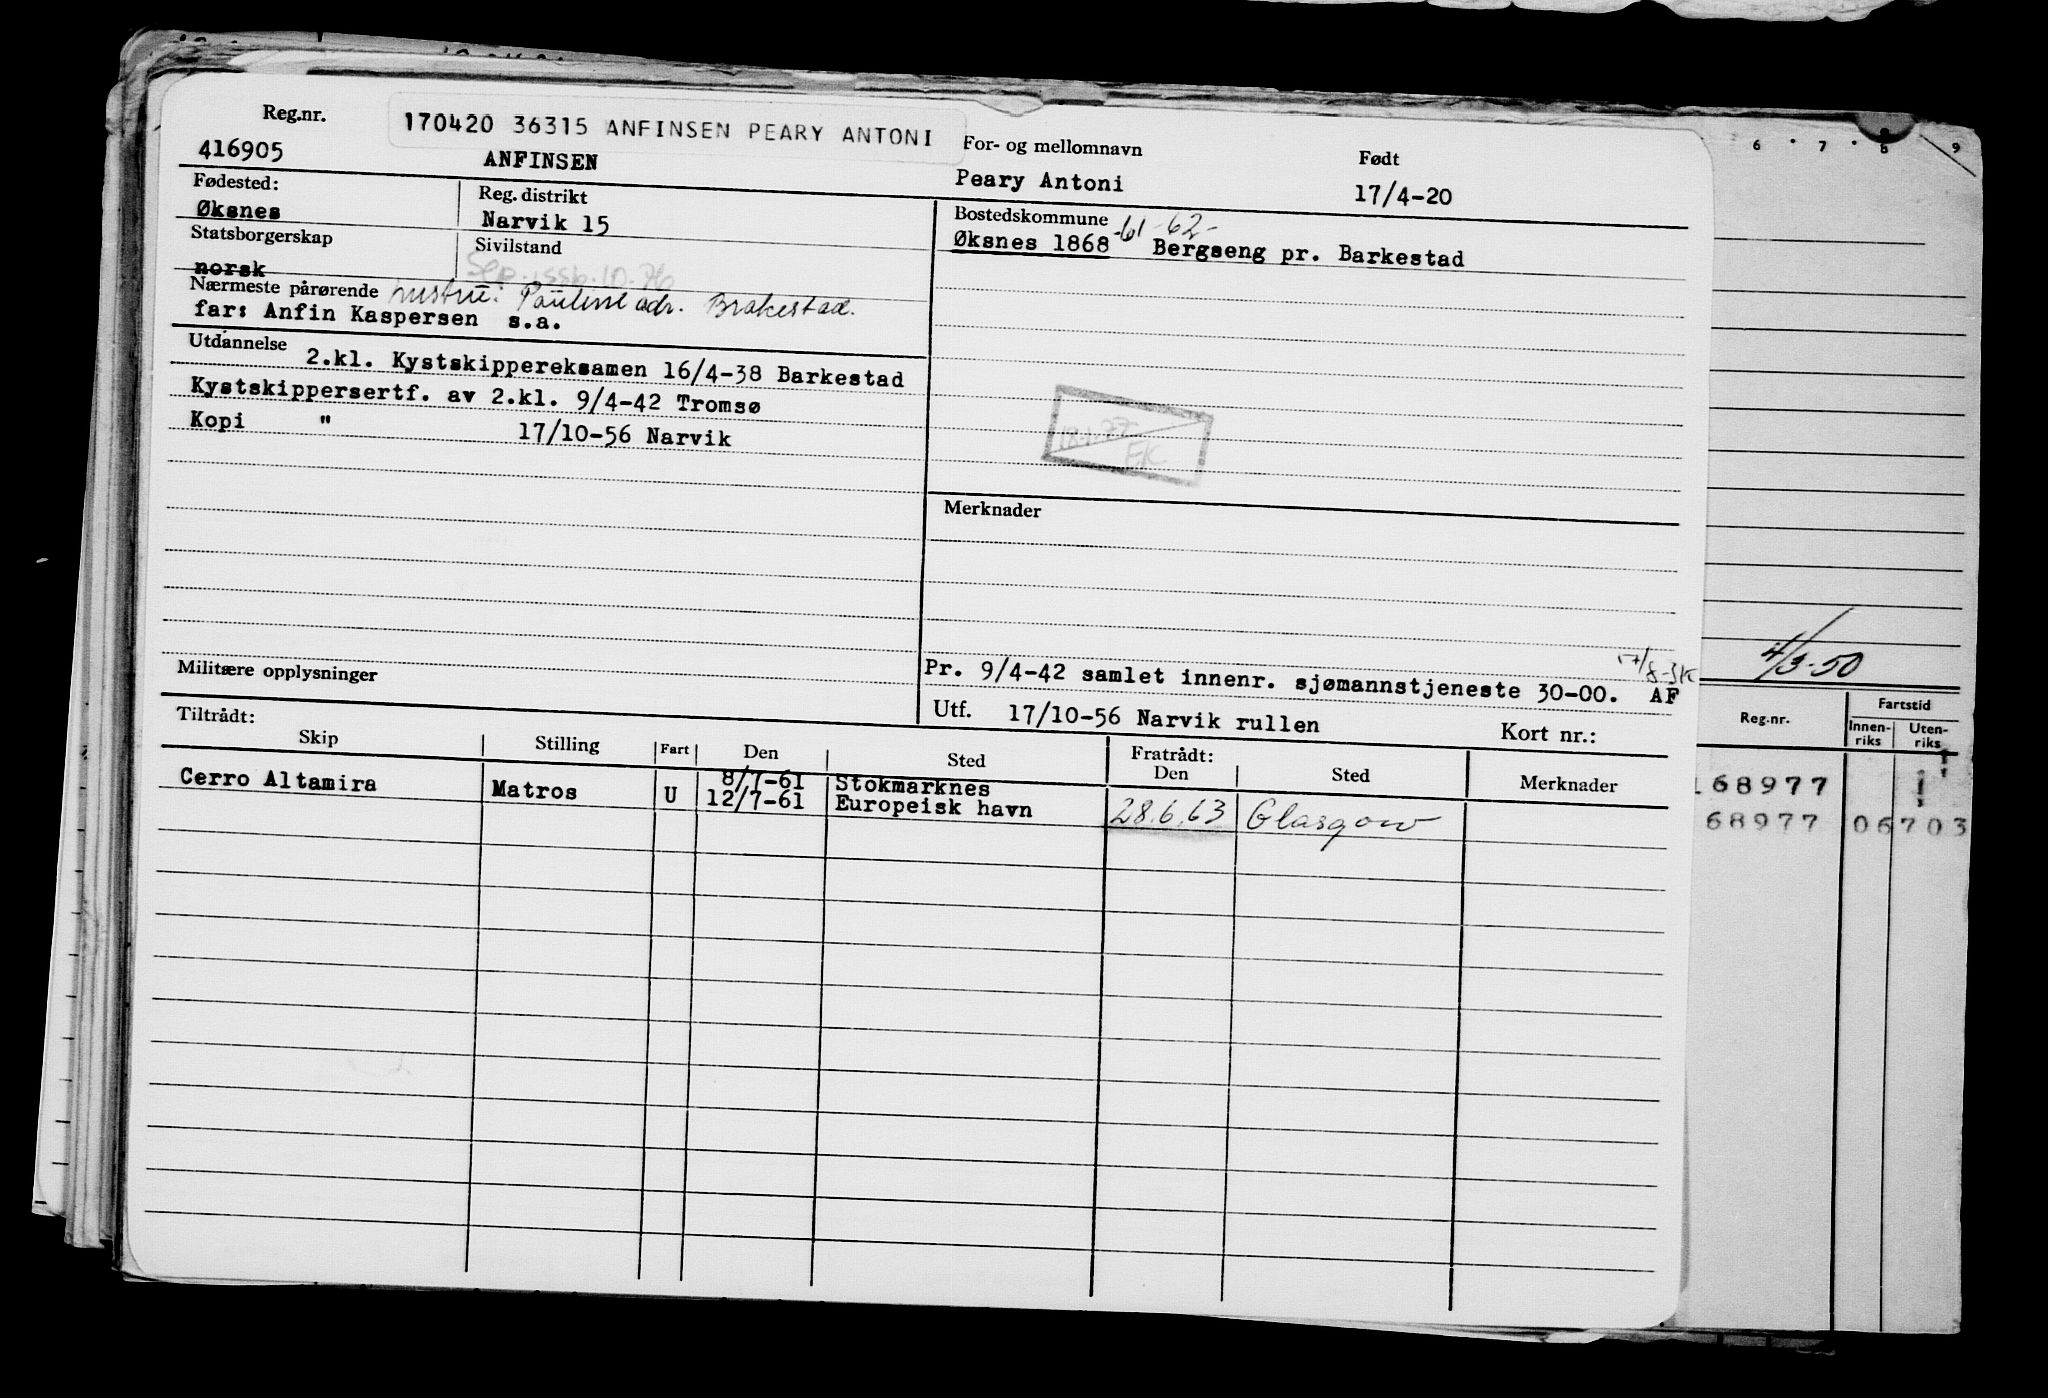 Reg.nr.
170420 36315 ANFINSEN PEARY ANTONI
For- og mellomnavn
Født
416905
ANFINSEN
Peary Antoni
17/4-20
Fødested:
Øksnes
Reg. distrikt
Narvik 15
Statsborgerskap
norsk
Sivilstand
Bostedskommune -61-62-
Øksnes 1868 Bergseng pr. Barkestad
Nærmeste pårørende hustru: Pauline adr. Brakestad.
far: Anfin Kaspersen s.a.
Utdannelse
2.kl. Kystskippereksamen 16/4-38 Barkestad
Kystskippersertf. av 2.kl. 9/4-42 Tromsø
Kopi " 17/10-56 Narvik
18.1.77
EK
Merknader
Militære opplysninger
Pr. 9/4-42 samlet innenr. sjømannstjeneste 30-00. AF
Utf. 17/10-56 Narvik rullen
Kort nr.:
Tiltrådt:
Skip
Stilling
Fart
Den
Sted
Fratrådt:
Den
Sted
Merknader
Cerro Altamira
Matros
U
8/7-61
12/7-61
Stokmarknes
Europeisk havn
28.6.63
Glasgow
6 . 7 . 8 9
4/3-50
Reg.nr.
Fartstid
Innen-
riks
Uten-
riks
68977
68977 06703